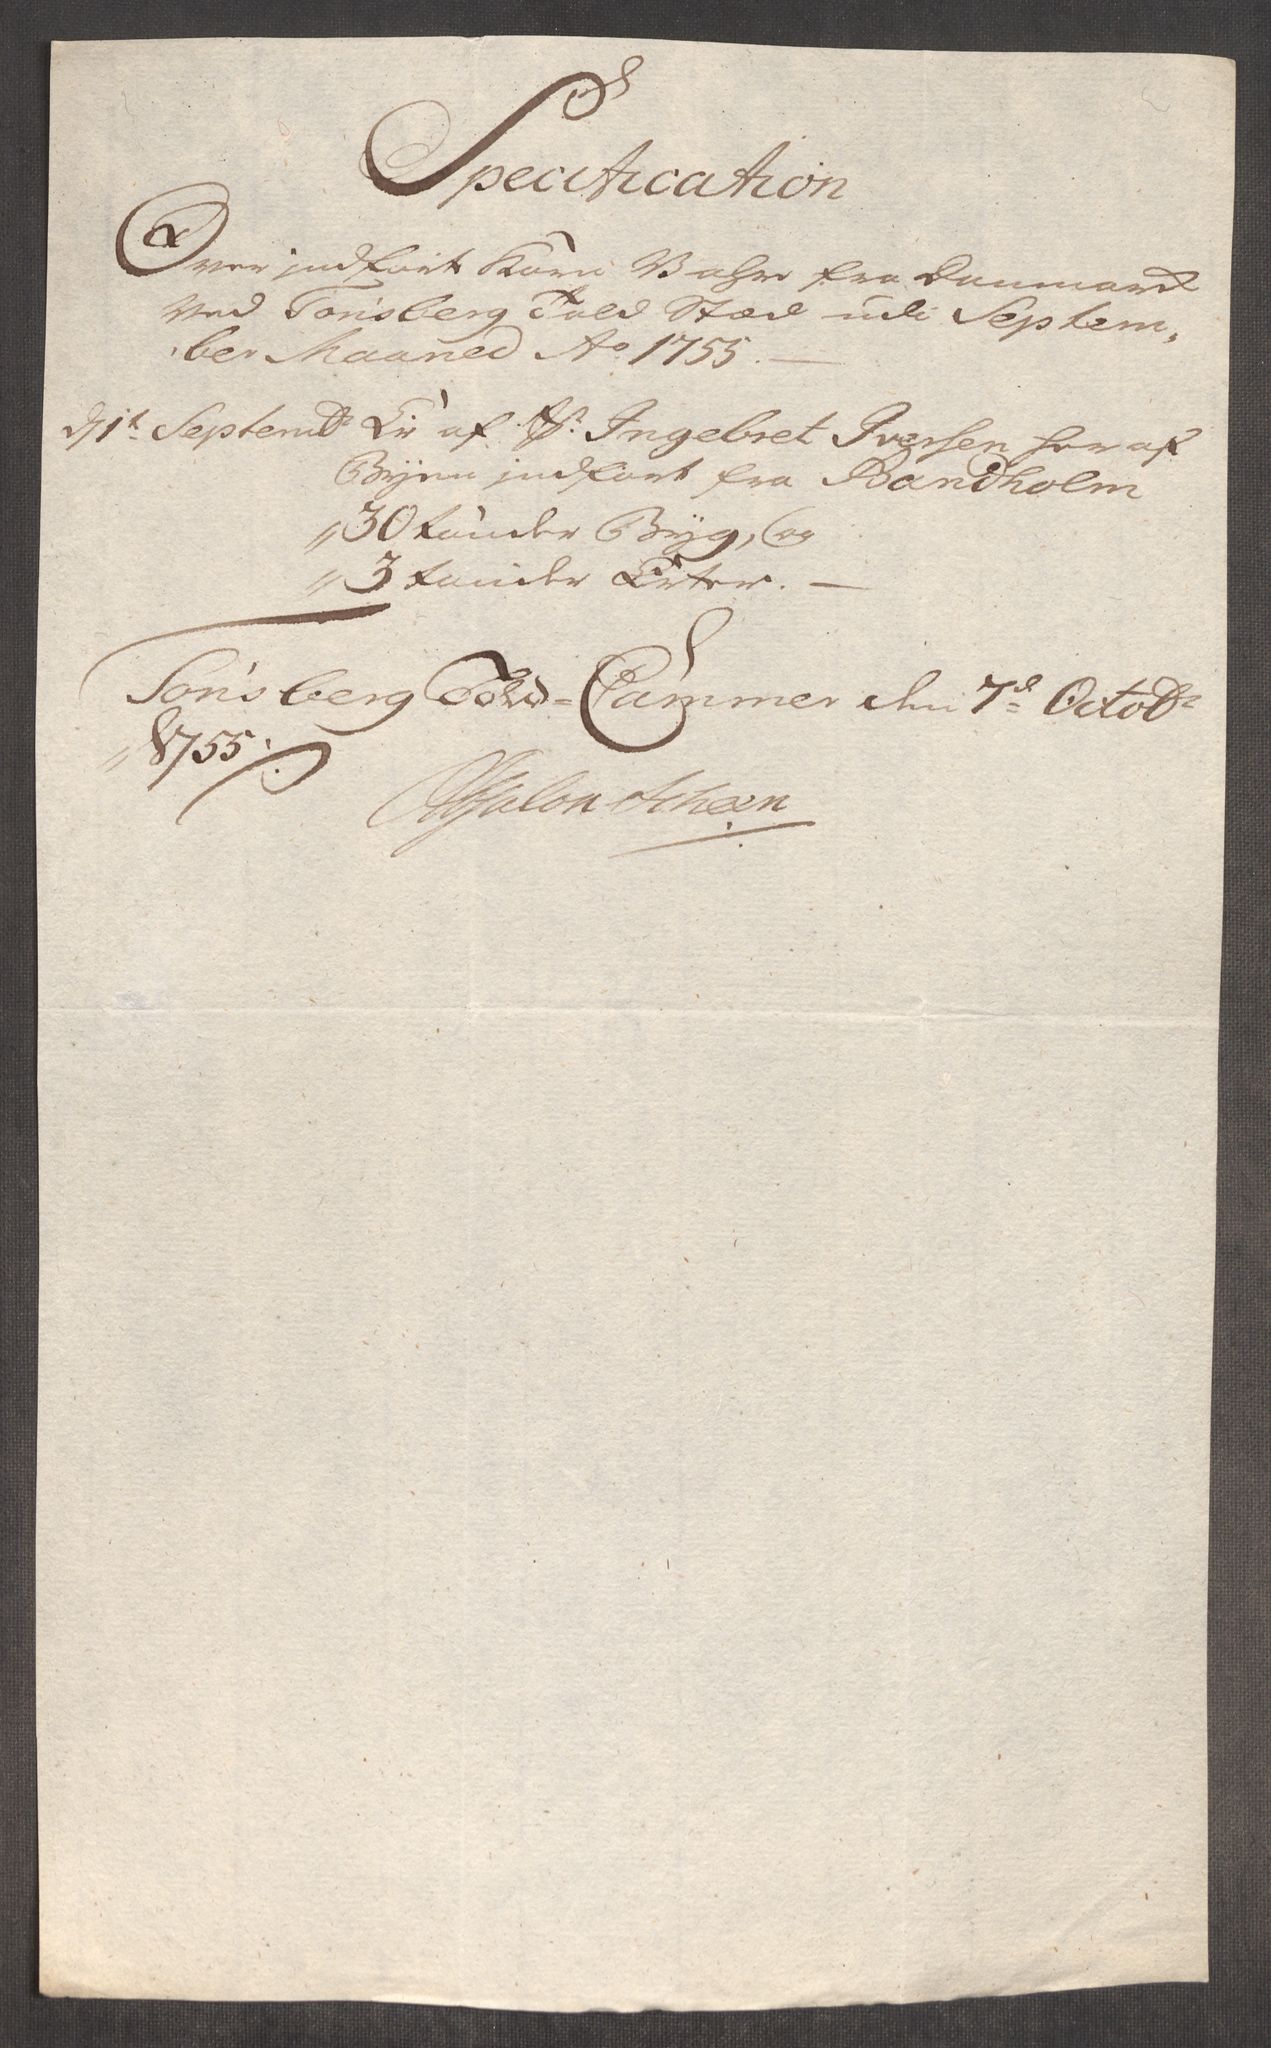 Specification
Over indført Korn Vahre fra Danmarck
ved Tonsberg Told Stæd udi Septem,
ber Maaned Ao 1755. —
d 1t Septembr Er af Sr. Ingebret Iversen her af
Byen indført fra Bandholm
„30 tønder Byg, og
„3 tønder Erter. —
Tonsberg Told-Cammer den 7d Octobr
„1755.
Absalon Achen